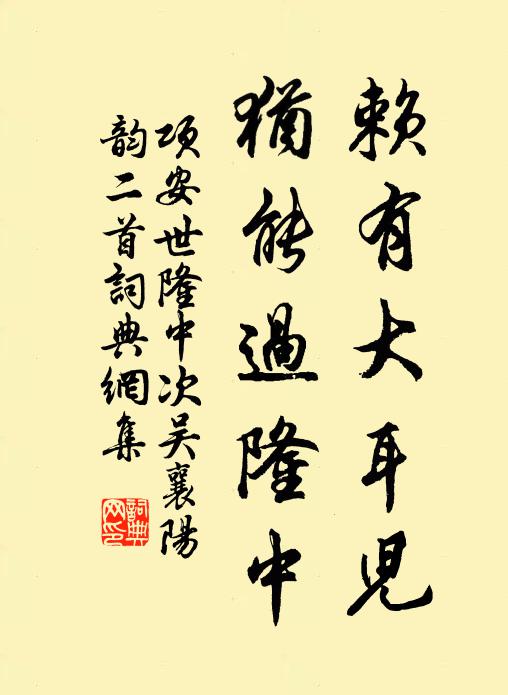 賴有大耳兒
猶能過隆中
項安世隆中次吴襄陽
韵二首詞典網集
詞典
网印